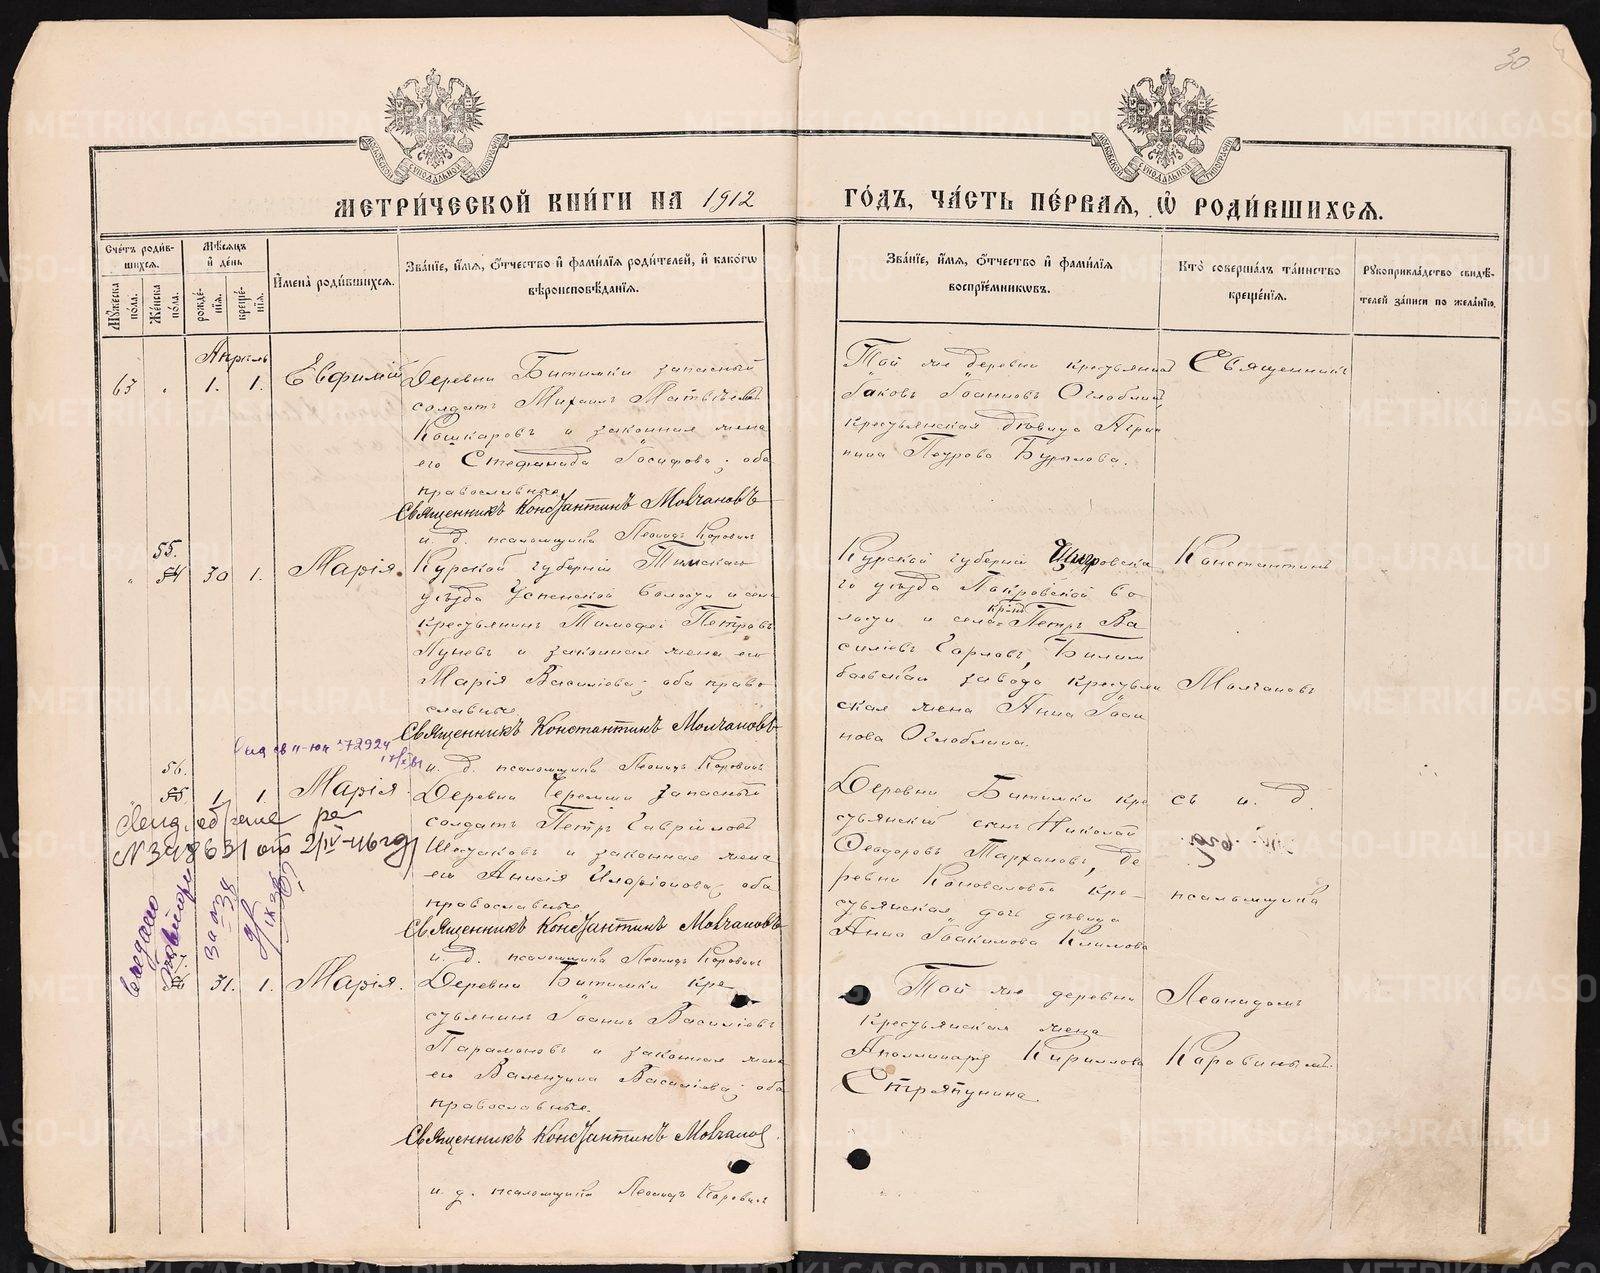 30
МЕТРИ́ЧЕСКОЙ КНИ́ГИ НА 1912 ГО́ДЪ, ЧА́СТЬ ПЕ́РВАЯ, Ѡ РОДИ́ВШИХСЯ.
Сче́тъ роди́вшихся.
Му́жеска по́ла.
Же́нска по́ла.
Мѣ́сяцъ и де́нь
рожде́нїя.
креще́нїя.
Имена̀ роди́вшихся.
Зва́нїе, и́мя, ѻ́тчество и фами́лїя роди́телей, и како́гѡ вѣроисповѣ́данїя.
Зва́нїе, и́мя, ѻ́тчество и фами́лїя воспрїе́мникѡвъ.
Кто̀ соверша́лъ та́инство креще́нїя.
Рукоприкла́дство свидѣ́телей за́писи по жела́нїю.
Апрѣль
63 " 1. 1.
Евфимій
Деревни Битимки запасный
солдатъ Михаилъ Матвѣевъ
Кошкаровъ и законная жена
его Стефанида Іосифова; оба
православные
Священникъ Константинъ Молчановъ
и. д. псаломщика Леонидъ Коровинъ
Той же деревни крестьянинъ
Іаковъ Іоанновъ Оглоблинъ,
крестьянская дѣвица
Петрова Бурылова.
Священникъ
55.
" 54 30 1.
Марія.
Курской губерніи Тимскаго
уѣзда Успенской волости и села
крестьянинъ Тимофей Петровъ
Луневъ и законная жена его
Марія Василіева; оба право-
славные
Священникъ Константинъ Молчановъ
и. д. псаломщика Леонидъ Коровинъ
Курской губерніи Щигровска-
го уѣзда Покровской во-
лости и села кр-нъ Петръ Ва-
силіевъ Горловъ, Билим-
баевскаго завода крестьян-
ская жена Анна Іоан-
нова Оглоблина.
Константинъ
Молчановъ
56.
55 1. 1.
Марія.
Деревни Черемши запасный
солдатъ Петръ Гавріиловъ
и законная жена
его Анисія Иларіонова; оба
православные
Священникъ Константинъ Молчановъ
и. д. псаломщика Леонидъ Коровинъ
Деревни Битимки кре-
стьянскій сынъ Николай
Ѳеодоровъ Тархановъ, де-
ревни Коноваловой кре-
стьянская дочь дѣвица
Анна Іоакимова Климова
съ и. д.
псаломщика
31. 1.
Марія.
Деревни Битимки кре-
стьянинъ Іоаннъ Василіевъ
Парамоновъ и законная жена
его Валентина Василіева; оба
православные.
Священникъ Константинъ Молчановъ
и. д. псаломщика Леонидъ Коровинъ
Той же деревни
крестьянская жена
Аполлинарія Кириллова
Стряпунина.
Леонидомъ
Коровинымъ.